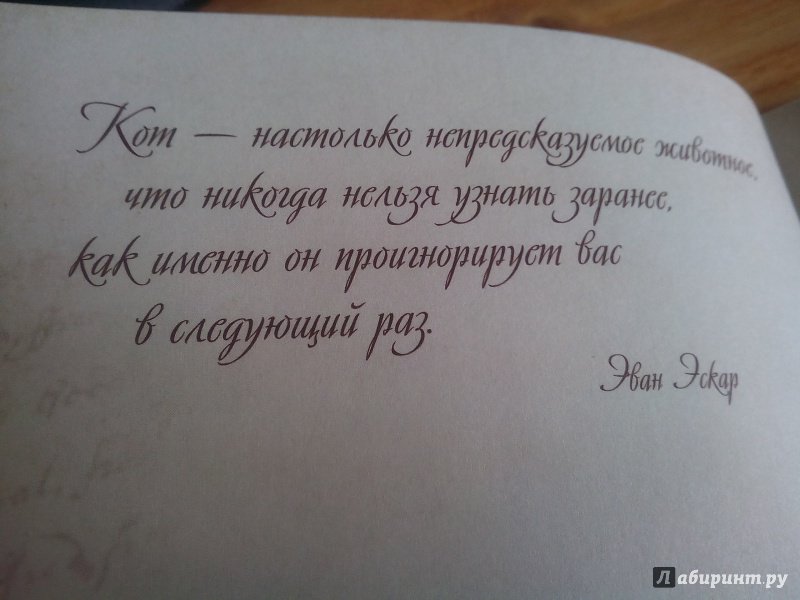 Кот — настолько непредсказуемое животное,
что никогда нельзя узнать заранее,
как именно он проигнорирует вас
в следующий раз.
Эван Эскар
Лабиринт.ру